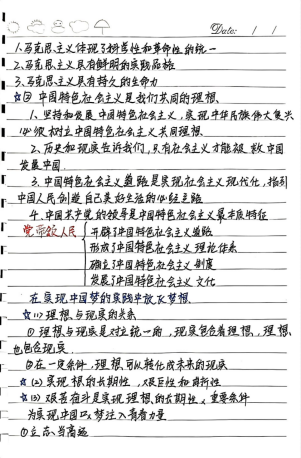 Date: / /
1.马克思主义体现了科学性和革命性的统一
2.马克思主义具有鲜明的实践品格
3.马克思主义具有持久的生命力
☆四 中国特色社会主义是我们共同的理想
1.坚持和发展中国特色社会主义,实现中华民族伟大复兴
必须树立中国特色社会主义共同理想
2.历史和现实告诉我们,只有社会主义才能救中国
发展中国.
3.中国特色社会主义道路是实现社会主义现代化,指引
中国人民创造自己美好生活的必经之路
4.中国共产党的领导是中国特色社会主义最本质特征
党带领人民
开辟了中国特色社会主义道路
形成了中国特色社会主义理论体系
确立了中国特色社会主义制度
发展了中国特色社会主义文化
在实现中国梦的实践中放飞梦想
☆(1)理想与现实的关系
①理想与现实是对立统一的,现实包含着理想,理想
也包含现实
②在一定条件,理想可以转化成未来的现实
☆(2)实现理想的长期性,艰巨性和曲折性
☆(3)艰苦奋斗是实现理想的重要条件
为实现中国梦注入青春力量
①立志当高远